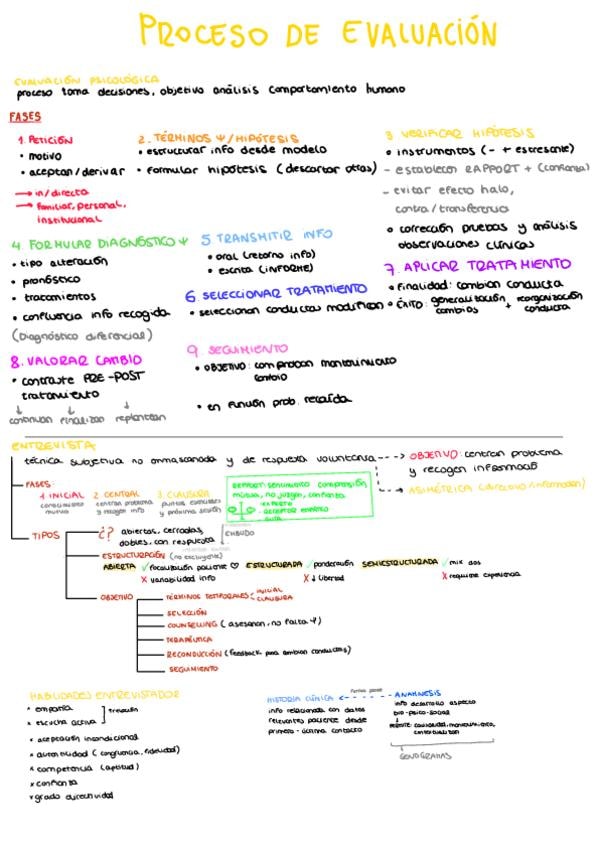 PROCESO DE EVALUACIÓN
EVALUACIÓN PSICOLÓGICA
proceso toma decisiones, objetivo análisis comportamiento humano
FASES
1. PETICIÓN
• motivo
• aceptan/derivar
→ in/directa
→ familiar, personal,
institucional
2. TÉRMINOS Ψ/HIPÓTESIS
• estructurar info desde modelo
• formular hipótesis (descartar otras)
3 VERIFICAR HIPÓTESIS
• instrumentos (- + estresante)
- establecen RAPPORT + (confianza)
- evitar efecto halo,
contra/transferencia
• corrección pruebas y análisis
observaciones clínicas
4. FORMULAR DIAGNÓSTICO Ψ
• tipo alteración
• pronóstico
• tratamientos
• confluencia info recogida
(Diagnóstico diferencial)
5 TRANSMITIR INFO
• oral (retorno info)
• escrita (INFORME)
6. SELECCIONAR TRATAMIENTO
• seleccionan conductas modifican
7. APLICAR TRATAMIENTO
• Finalidad: cambian conducta
• ÉXITO: generalización cambios + reorganización conducta
8. VALORAR CAMBIO
• contraste PRE-POST
tratamiento
↓ ↓ ↓
continuan finalizan replantean
9. SEGUIMIENTO
• OBJETIVO: comproban mantenimiento
cambio
• en función prob. recaída
ENTREVISTA
técnica subjetiva no enmascarada y de respuesta voluntaria
→ OBJETIVO: centran problema
y recogen información
→ ASIMÉTRICA (
FASES:
1 INICIAL
conocimiento
mutuo
2 CENTRAL
centran problema
y recogen info
3 CLAUSURA
puntos
y próxima sesión
RAPPORT: sentimiento comprensión
mutua, no juzgan, confianza
EXPERTO
TIPOS
¿? abiertas, cerradas,
dobles, con respuesta
EMBUDO
ESTRUCTURACIÓN (no excluyente)
ABIERTA ✓ focalización paciente ♡
✗ variabilidad info
ESTRUCTURADA ✓ ponderación
✗ ↓ libertad
SEMIESTRUCTURADA ✓ mix dos
✗ requiere experiencia
OBJETIVO
TÉRMINOS TEMPORALES INICIAL
CLAUSURA
SELECCIÓN
COUNSELING (asesoran, no falta Ψ)
TERAPÉUTICA
(feedback para cambian conductas)
SEGUIMIENTO
HABILIDADES ENTREVISTADOR
× empatía
× escucha activa
× aceptación incondicional
× autenticidad (congruencia, fidelidad)
× competencia (aptitud)
× confianza
× grado directividad
HISTORIA CLÍNICA
info relacionada con datos
relevantes paciente desde
primero - último contacto
Forma parte
ANAMNESIS
info desarrollo aspecto
bio-psico-social
↓
GENOGRAMAS